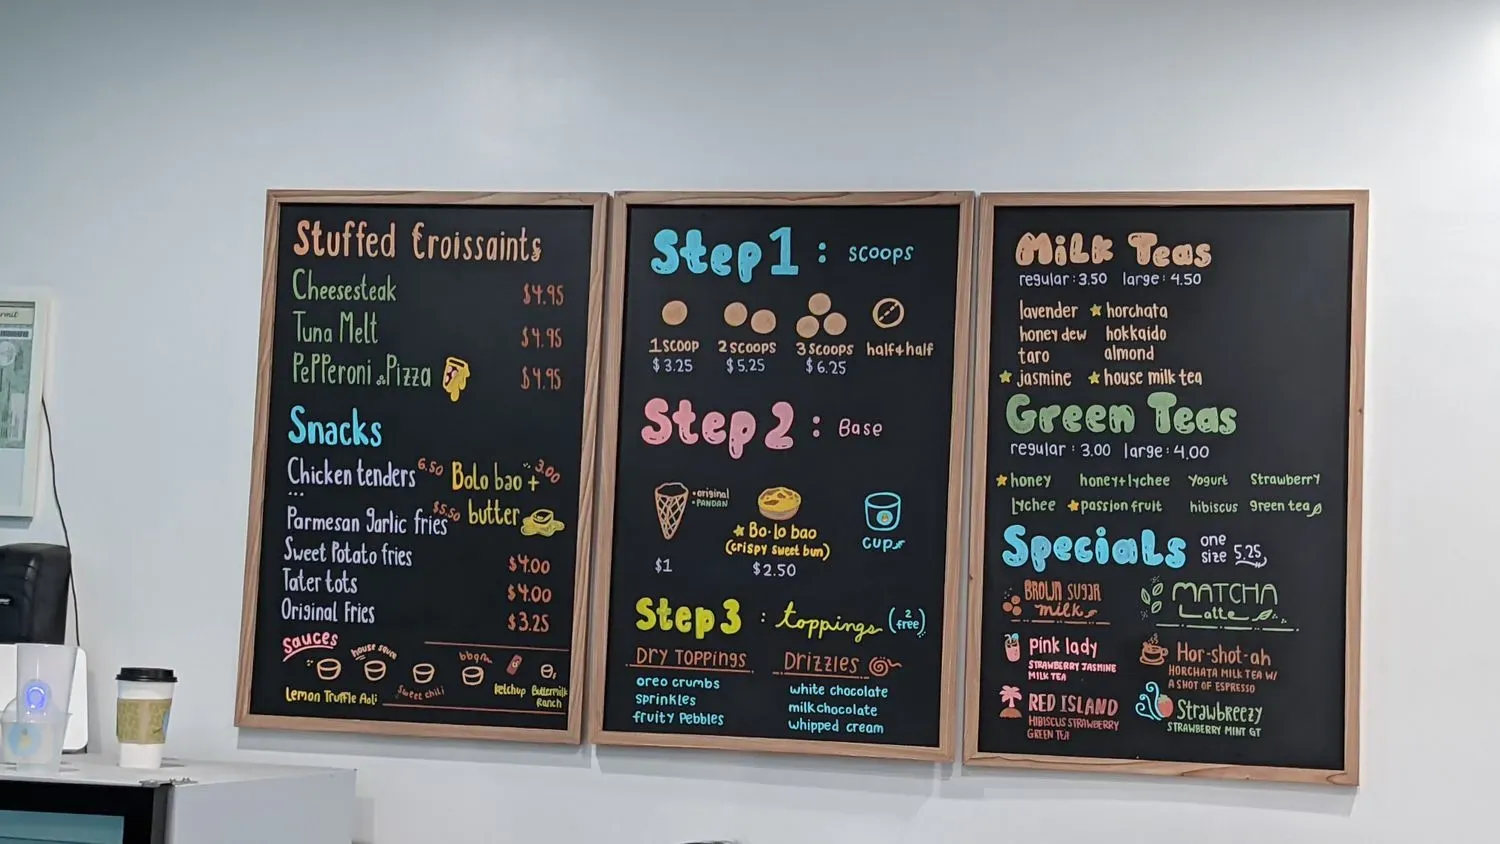 Stuffed Croissaints
Cheesesteak $4.95
Tuna Melt $4.95
Pepperoni Pizza $4.95
Snacks
Chicken tenders 6.50
Bolo bao + butter 3.00
Parmesan garlic fries $5.50
Sweet Potato fries $4.00
Tater tots $4.00
Original Fries $3.25
Sauces
Lemon Truffle Aoli
house sauce
sweet chili
bbq
ketchup
Buttermilk
Ranch
Step 1 : scoops
1 scoop 2 scoops 3 scoops half & half
$3.25 $5.25 $6.25
Step 2 : Base
•original
•PANDAN
$1
Bo·lo bao
(crispy sweet bun)
$2.50
cup
Step 3 : toppings (2 free)
Dry Toppings
oreo crumbs
sprinkles
fruity Pebbles
Drizzles
white chocolate
milk chocolate
whipped cream
Milk Teas
regular : 3.50 large : 4.50
lavender horchata
honey dew hokkaido
taro almond
jasmine house milk tea
Green Teas
regular : 3.00 large : 4.00
honey honey+lychee Yogurt Strawberry
lychee passion fruit hibiscus green tea
Specials one size 5.25
Brown Sugar
milk
MATCHA
Latte
pink lady
STRAWBERRY JASMINE
MILK TEA
Hor-shot-ah
HORCHATA MILK TEA W/
A SHOT OF ESPRESSO
RED ISLAND
HIBISCUS STRAWBERRY
GREEN TEA
Strawbreezy
STRAWBERRY MINT GT